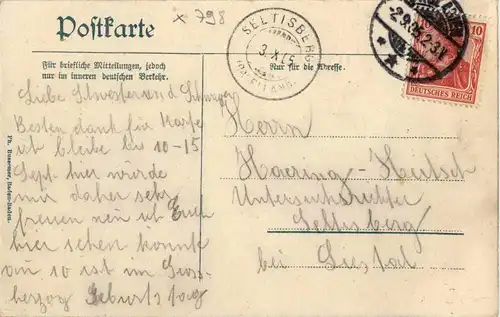 x 798
Postkarte
Für briefliche Mitteilungen, jedoch
nur im inneren deutschen Verkehr.
Nur für die Adresse.
SELTISBERG
3.X.05
10
DEUTSCHES REICH
Ph. Bussemer, Baden-Baden.
Liebe Schwester und Schwager
Besten dank für Karte
ich bleibe bis 10-15
Sept hier würde
mir daher sehr
freuen wen ich Euch
hier sehen könnte
am 10 ist im Gross-
herzog Geburtstag
Herrn
Haering-Heitsch
Untersuchrichter
Seltisberg
bei Liestal